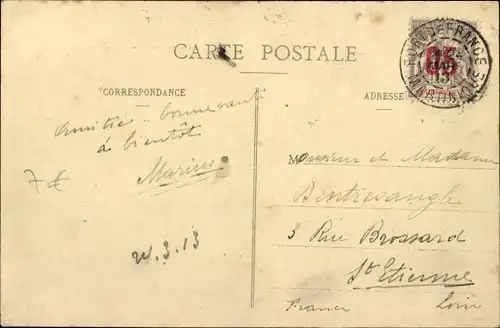 CARTE POSTALE
CORRESPONDANCE
ADRESSE
FORT DE FRANCE
MARTINIQUE
05
amitiés - bonne santé
à bientôt
Marius
7 €
24.3.13
Monsieur et Madame
Bentresangle
3 Rue Brossard
St Etienne
France Loire